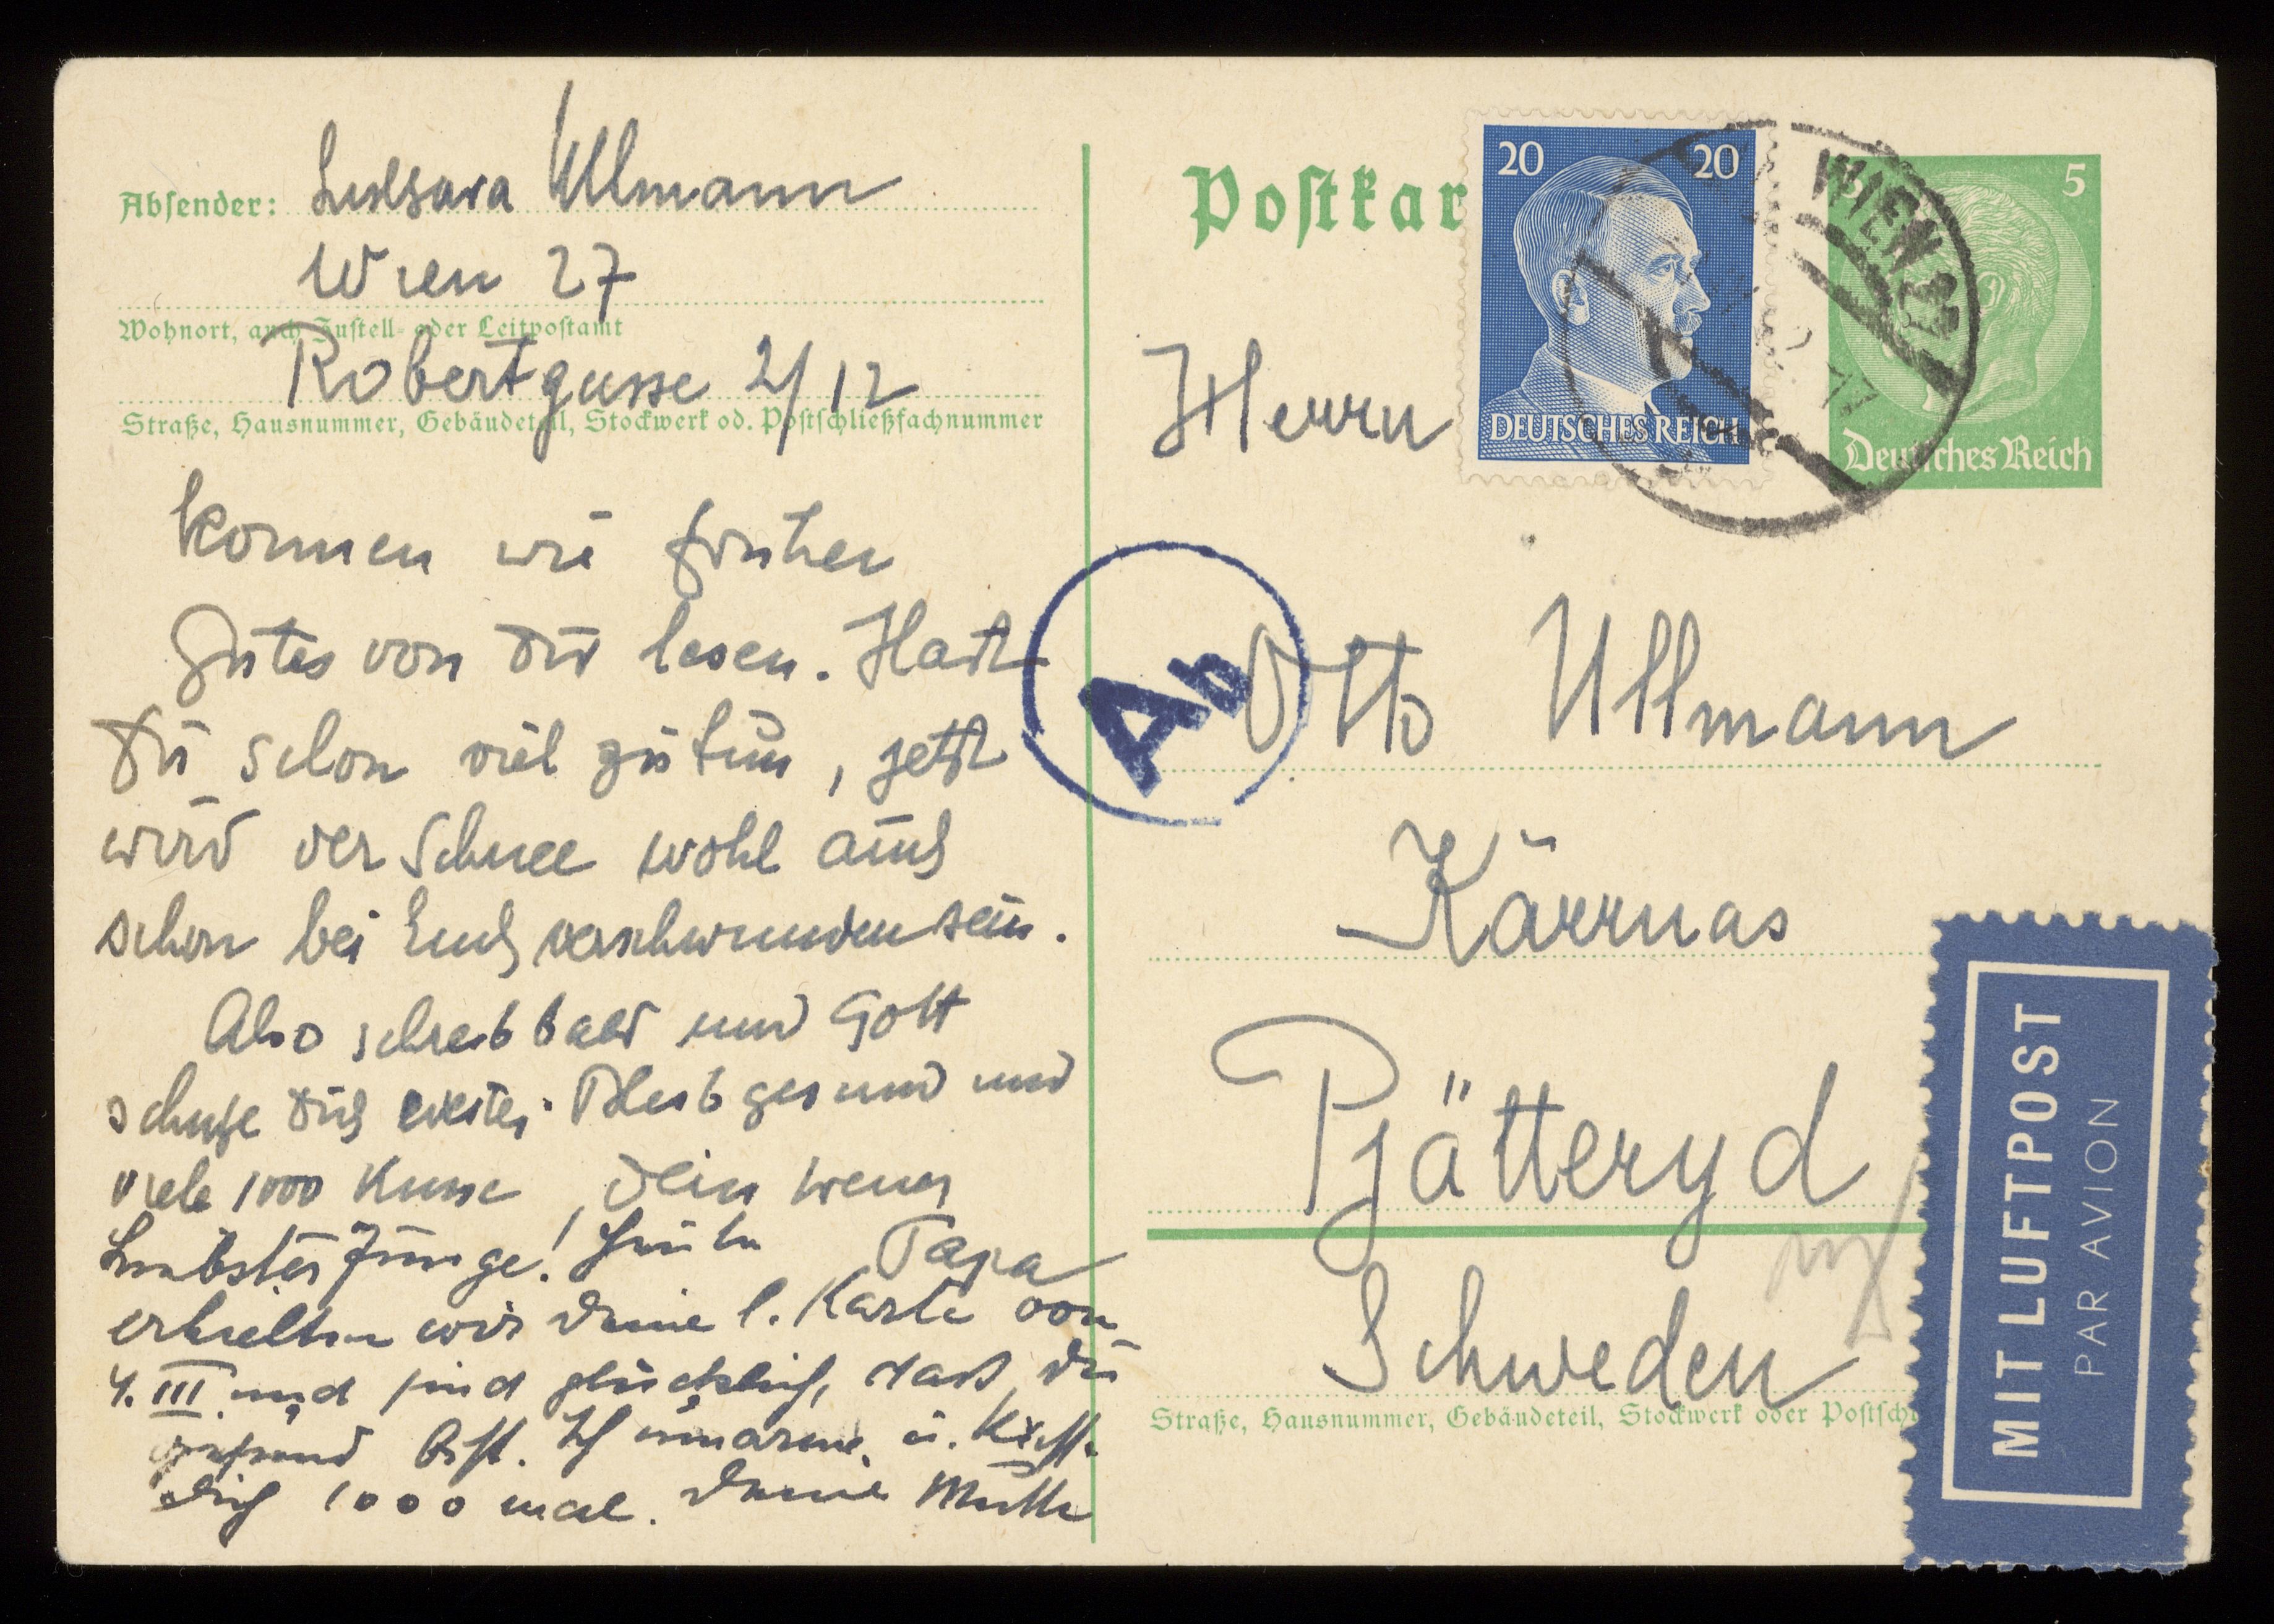 Absender: Ullmann
Wien 27
Wohnort, auch Zustell- oder Leitpostamt
Robertgasse 2/12
Straße, Hausnummer, Gebäudeteil, Stockwerk od. Postschließfachnummer
können wir früher
Gutes von Dir lesen. Hast
Du schon viel zu tun, jetzt
wird der Schnee wohl auch
schon bei Euch verschwunden sein.
Also schreib bald und Gott
schütze Dich weiter. Bleib gesund und
viele 1000 Küsse, Dein treuer
Papa
Liebster Junge! Heute
erhielten wir Deine l. Karte von
4. III. und sind glücklich, dass Du
gesund bist. Ich umarme u. küsse
Dich 1000 mal. Deine Mutti
Postkar
20 20
DEUTSCHES REICH
WIEN 27
5
Deutsches Reich
Herrn
Ab
Otto Ullmann
Kärrnäs
Pjätteryd
Schweden
Straße, Hausnummer, Gebäudeteil, Stockwerk oder Postsch
MIT LUFTPOST
PAR AVION